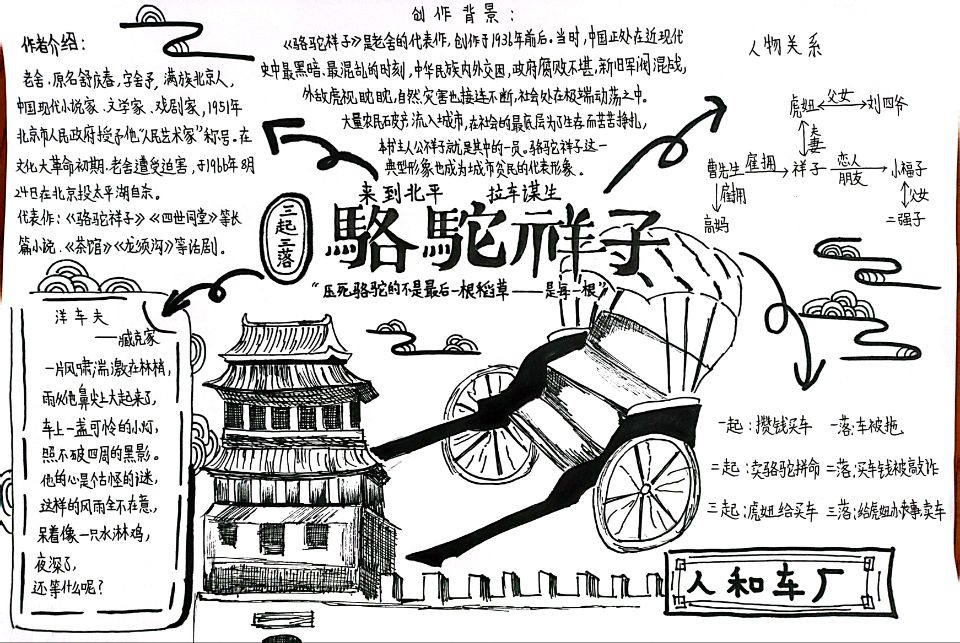 创作背景：
《骆驼祥子》是老舍的代表作，创作于1936年前后。当时，中国正处在近现代
史中最黑暗、最混乱的时刻，中华民族内外交困，政府腐败不堪，新旧军阀混战，
外敌虎视眈眈，自然灾害也接连不断，社会处在极端动荡之中。
大量农民破产流入城市，在社会的最底层为了生存而苦苦挣扎，
本村主人公祥子就是其中的一员。骆驼祥子这一
典型形象也成为城市贫民的代表形象。
作者介绍：
老舍，原名舒庆春，字舍予，满族北京人，
中国现代小说家、文学家、戏剧家，1951年
北京市人民政府授予他“人民艺术家”称号。在
文化大革命初期，老舍遭受迫害，于1966年8月
24日在北京投太平湖自杀。
代表作：《骆驼祥子》《四世同堂》等长
篇小说、《茶馆》《龙须沟》等话剧。
人物关系
虎妞 父女 刘四爷
夫妻
曹先生 雇拥 祥子 恋人 朋友 小福子
雇拥
父女
高妈
二强子
来到北平 拉车谋生
三起三落
駱駝祥子
“压死骆驼的不是最后一根稻草——是每一根”
洋车夫
——臧克家
一片风啸湍激在林梢，
雨从他鼻尖上大起来了，
车上一盏可怜的小灯，
照不破四周的黑影。
他的心是个古怪的谜，
这样的风雨全不在意，
呆着像一只水淋鸡，
夜深了，
还等什么呢？
一起：攒钱买车 一落：车被拖
二起：卖骆驼拼命 二落：买车钱被敲诈
三起：虎妞给买车 三落：给虎妞办丧事卖车
人和车厂